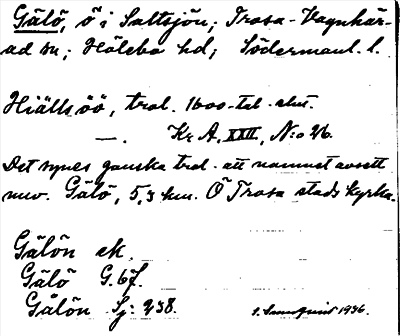 Gälö, ö i Saltsjön; Trosa-Vagnhär-
ad sn; Hölebo hd; Södermanl. l.
Hiälls öö, trol. 1600-tal. slut.
—. Kr. A. XXII, N:o 26.
Det synes ganska trol. att namnet avsett
nuv. Gälö, 5,3 km. O Trosa stads kyrka.
Gälön ek.
Gälö G. bf.
Gälön Sj: 238.
1936.